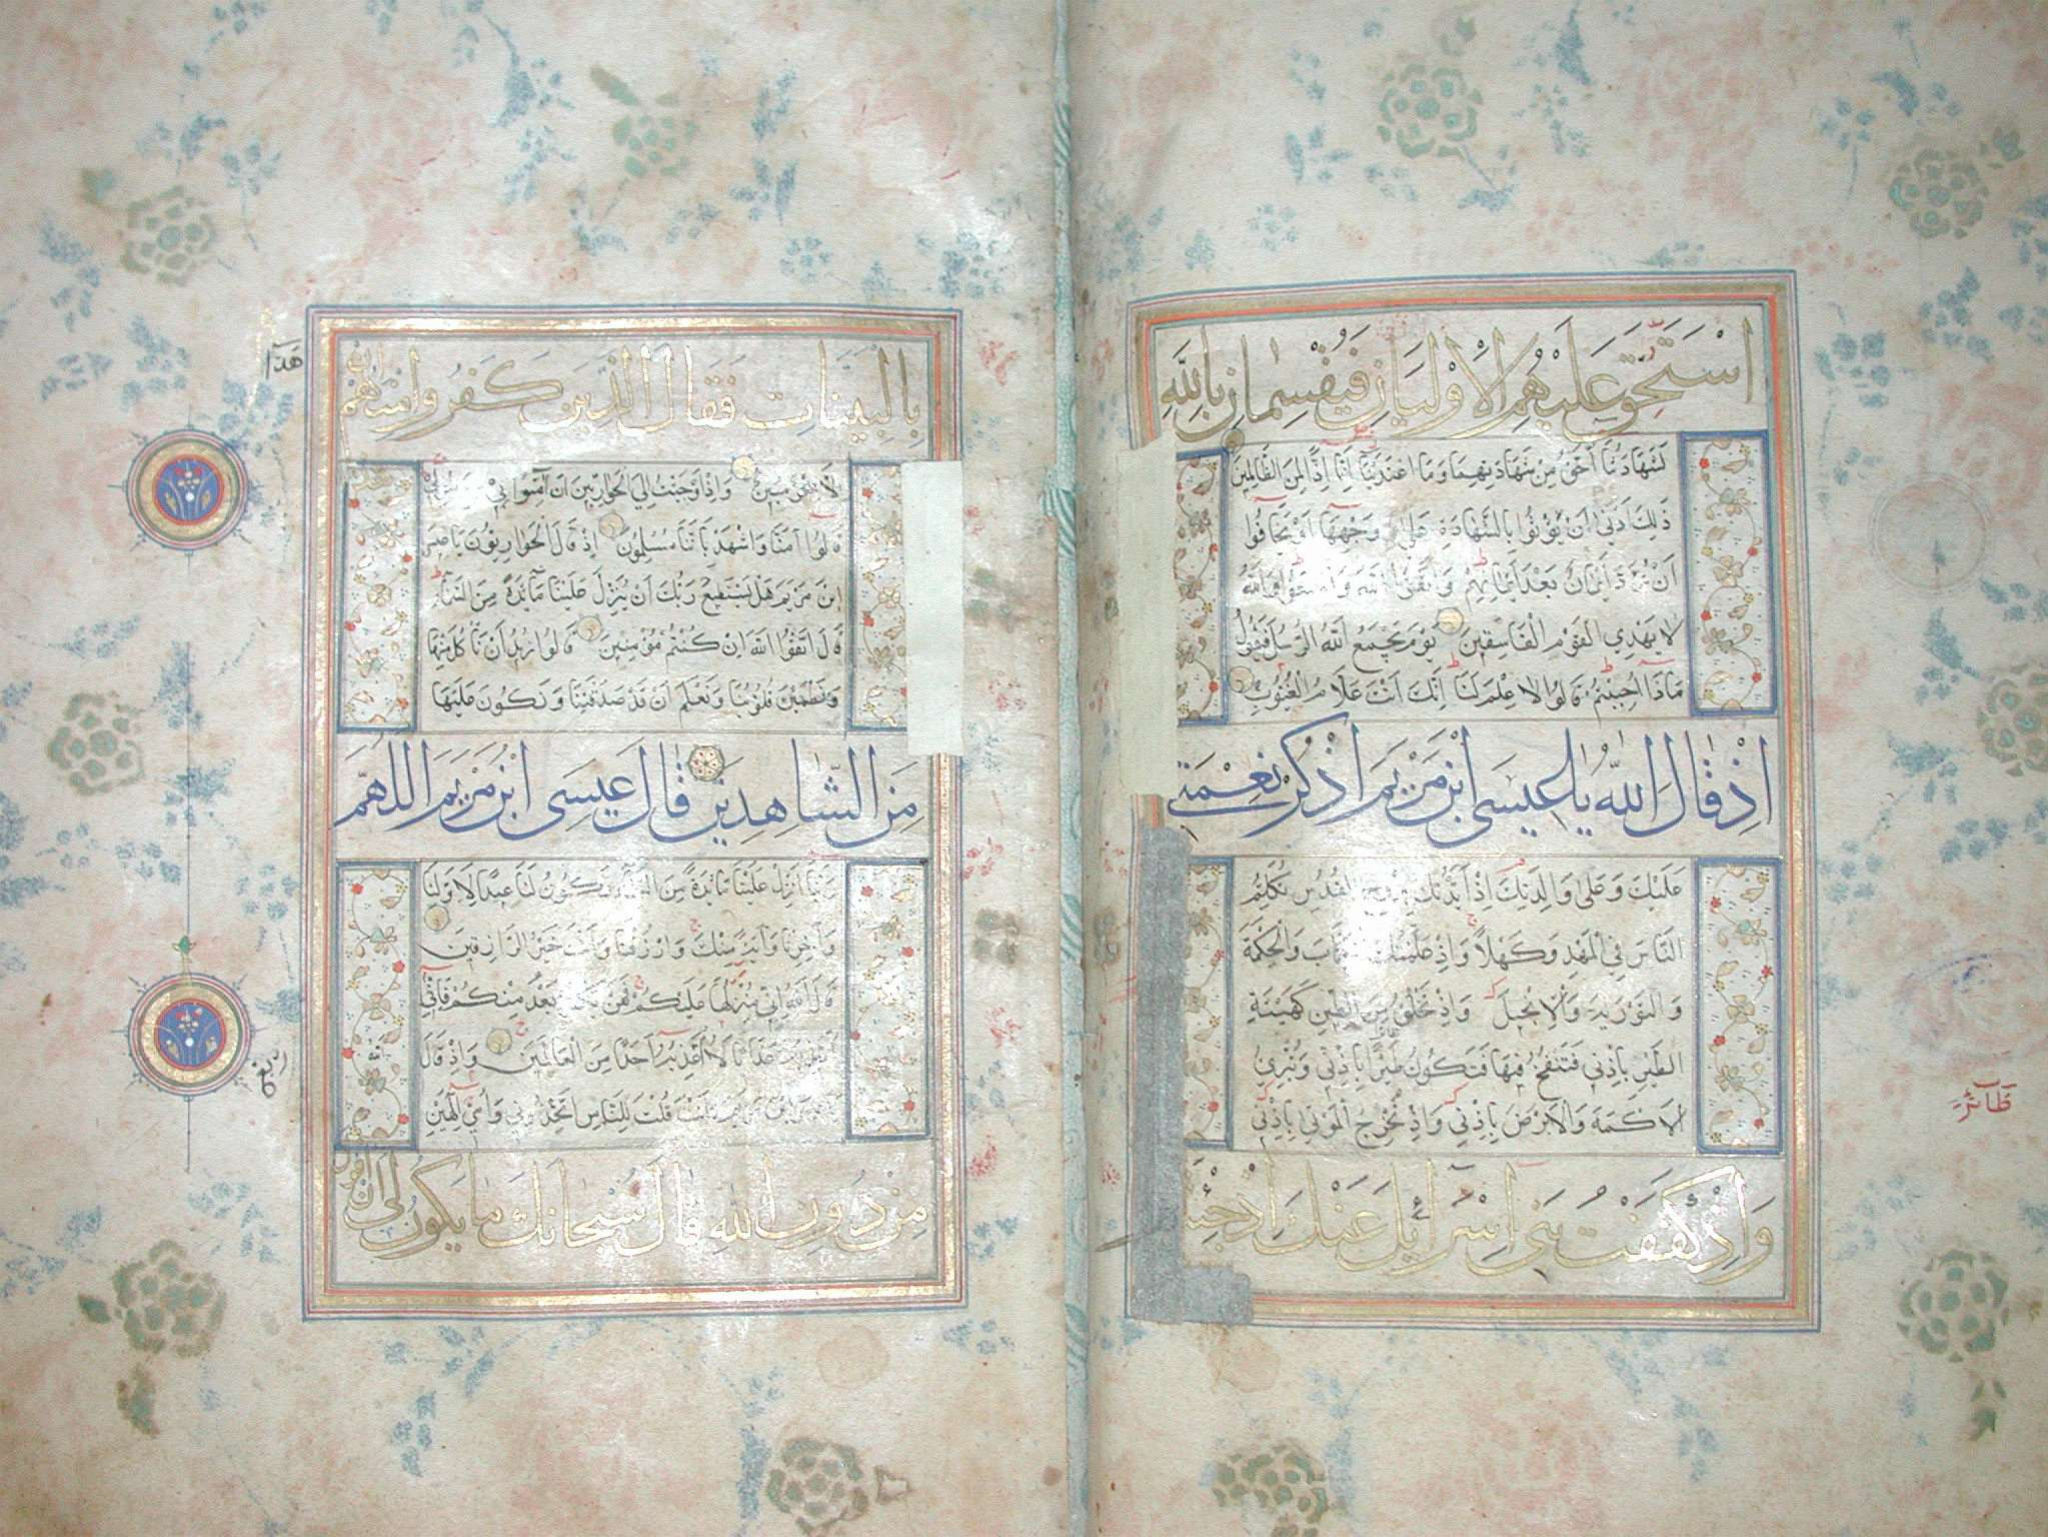 استحق عليهم الاوليان فيقسمان بالله
لشهادتنا احق من شهادتهما وما اعتدينا انا اذا لمن الظالمين
ذلك ادنى ان يؤتوا بالشهادة على وجهها او يخافوا
ان ترد ايمان بعد ايمانهم واتقوا الله واسمعوا والله
لا يهدي القوم الفاسقين يوم يجمع الله الرسل فيقول
ماذا اجبتم قالوا لا علم لنا انك انت علام الغيوب
اذ قال الله يا عيسى ابن مريم اذكر نعمتي
عليك وعلى والدتك اذ ايدتك بروح القدس تكلم
الناس في المهد وكهلا واذ علمتك الكتاب والحكمة
والتورية والانجيل واذ تخلق من الطين كهيئة
الطير باذني فتنفخ فيها فتكون طيرا باذني وتبرئ
الاكمه والابرص باذني واذ تخرج الموتى باذني
طائر
واذ كففت بني اسرائيل عنك اذ جئتهم
بالبينات فقال الذين كفروا منهم ان
هذا
الا سحر مبين واذ اوحيت الي الحواريين ان آمنوا بي وبرسولي
قالوا آمنا واشهد باننا مسلمون اذ قال الحواريون يا عيسى
ابن مريم هل يستطيع ربك ان ينزل علينا مآئدة من السمآء
قال اتقوا الله ان كنتم مؤمنين قالوا نريد ان ناكل منها
وتطمئن قلوبنا ونعلم ان قد صدقتنا ونكون عليها
من الشاهدين قال عيسى ابن مريم اللهم
ربنا انزل علينا مائدة من السمآء تكون لنا عيدا لاولنا
وآخرنا وآية منك وارزقنا وانت خير الرازقين
قال الله اني منزلها عليكم فمن يكفر بعد منكم فاني
اعذبه عذابا لا اعذبه احدا من العالمين واذ قال
الله يا عيسى ابن مريم ءانت قلت للناس اتخذوني وامي الهين
من دون الله قال سبحانك ما يكون لي ان اقول